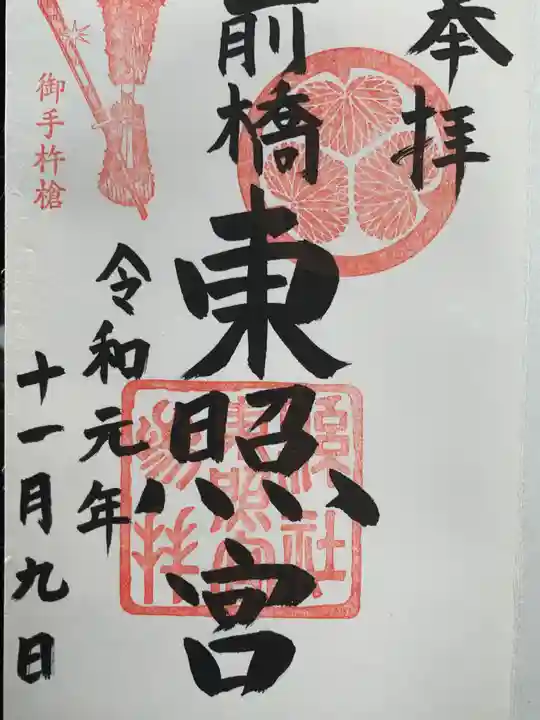 奉拝
前橋
東照宮
令和元年
十一月九日
御手杵槍
東照宮